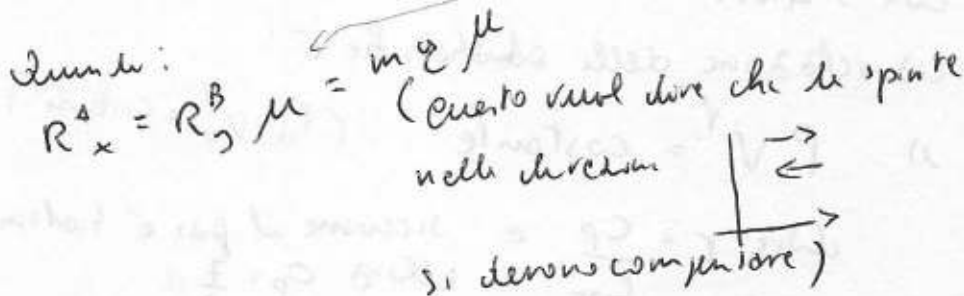 Quindi:
R^A_x = R^B_y μ = m g μ
(questo vuol dire che le spinte
nelle direzioni
si devono compensare)